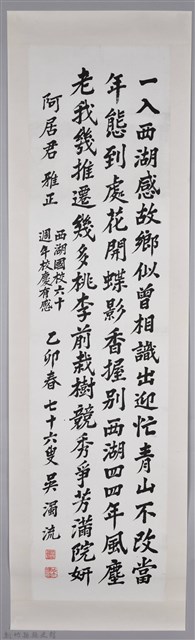 一入西湖感故鄉似曾相識出迎忙青山不改當
年態到處花開蝶影香握別西湖四四年風塵
老我幾推遷幾多桃李前栽樹競秀爭芳滿院妍
阿居君 雅正
西湖國校六十
週年校慶有感
乙卯春 七十六叟 吳濁流